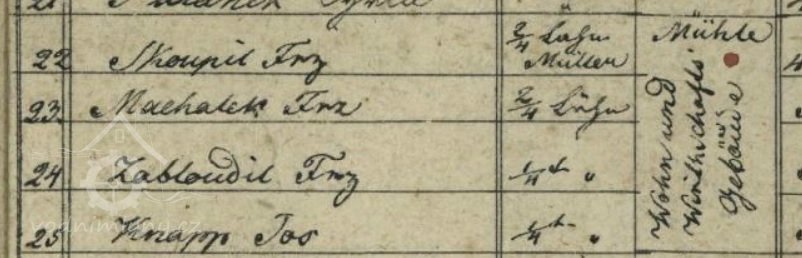 22 Skoupil Frz 2/4 Lähn Müller Mühle
23 Machatek Frz 2/4 Lähn
24 Zabloudil Frz 1/4 t "
25 Knapp Jos 1/4 t "
Wohn und
Wirthschafts
Gebäude
vodnimlyny.cz